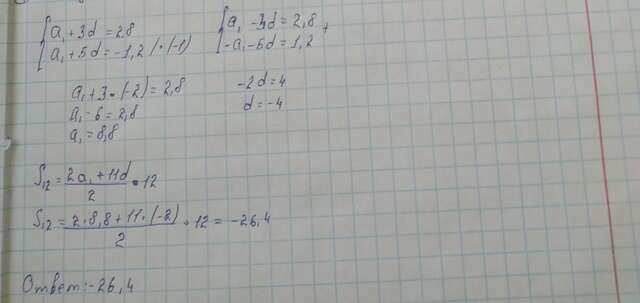 a₁ + 3d = 2,8
a₁ + 5d = -1,2 / · (-1)
a₁ - 3d = 2,8
-a₁ - 5d = 1,2 +
a₁ + 3 · (-2) = 2,8
a₁ - 6 = 2,8
a₁ = 8,8
-2d = 4
d = -4
S₁₂ = (2a₁ + 11d)/2 · 12
S₁₂ = (2 · 8,8 + 11 · (-2))/2 · 12 = -26,4
Ответ: -26,4